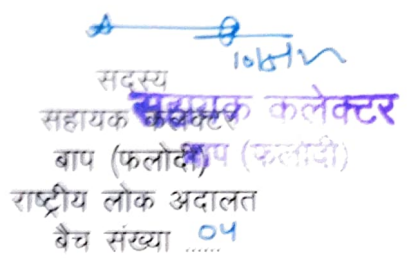 सदस्य
सहायक कलेक्टर
सहायक कलेक्टर
बाप (फलोदी)
बाप (फलोदी)
राष्ट्रीय लोक अदालत
बैच संख्या ...... 04